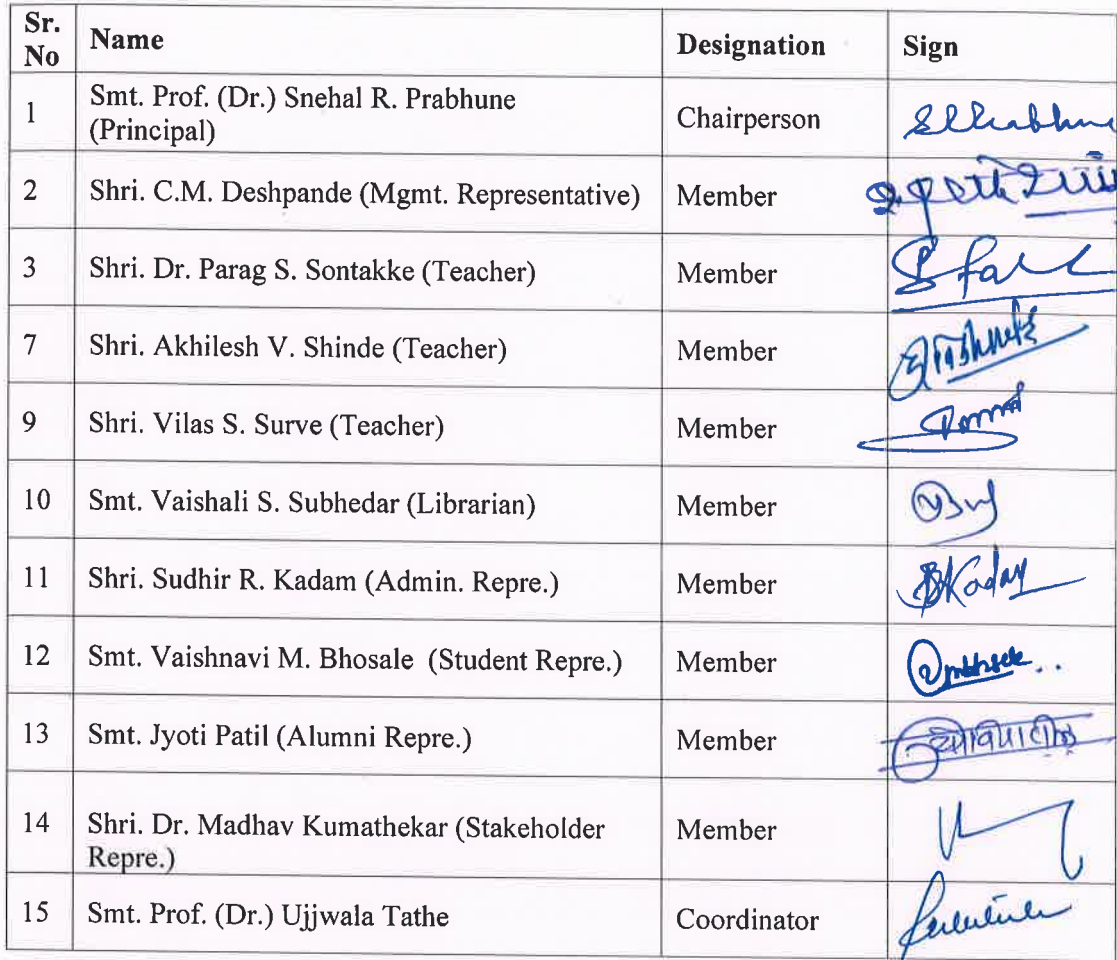 Sr. No Name Designation Sign
1 Smt. Prof. (Dr.) Snehal R. Prabhune Chairperson
(Principal)
2 Shri. C.M. Deshpande (Mgmt. Representative) Member
3 Shri. Dr. Parag S. Sontakke (Teacher) Member
7 Shri. Akhilesh V. Shinde (Teacher) Member
9 Shri. Vilas S. Surve (Teacher) Member
10 Smt. Vaishali S. Subhedar (Librarian) Member
11 Shri. Sudhir R. Kadam (Admin. Repre.) Member
12 Smt. Vaishnavi M. Bhosale (Student Repre.) Member
13 Smt. Jyoti Patil (Alumni Repre.) Member
14 Shri. Dr. Madhav Kumathekar (Stakeholder Member
Repre.)
15 Smt. Prof. (Dr.) Ujjwala Tathe Coordinator